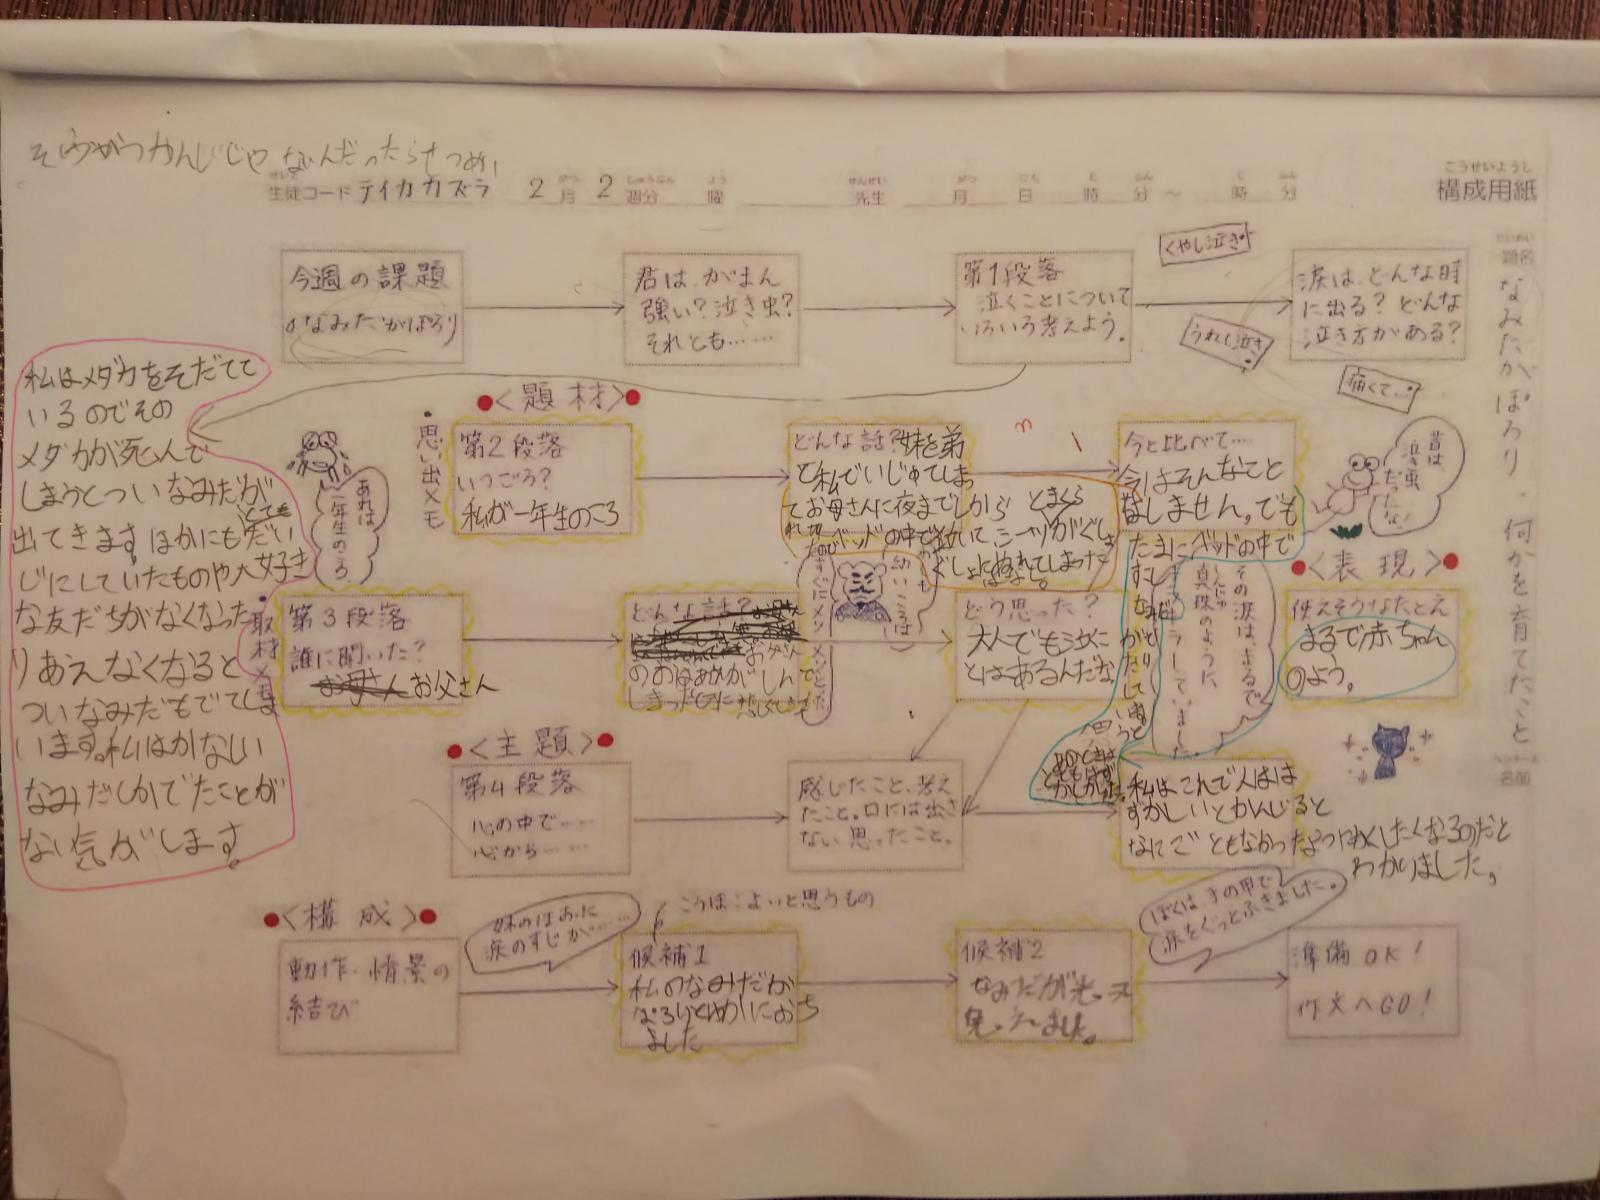 そうがつかんじじゃないんだったらせつめい
生徒コード テイカカズラ 2月 2週分 曜 先生 月 日 時 分 〜 時 分
構成用紙
こうせいようし
題名
なみだがぽろり、何かを育てたこと
名前
今週の課題
なみだがぽろり
君は、がまん
強い？泣き虫？
それとも……
第1段落
泣くことについて
いろいろ考えよう。
くやし泣き
うれし泣き
痛くて…
涙は、どんな時
に出る？どんな
泣き方がある？
私はメダカをそだてて
いるのでその
メダカが死んで
しまうとついなみだが
出てきます。ほかにもとてもだい
じにしていたものや大好き
な友だちがなくなった
りあえなくなると
ついなみだもでてしま
います。私はかなしい
なみだしかでたことが
ない気がします。
＜題材＞
・思い出メモ
第2段落
いつごろ？
私が一年生のころ
あれは
二年生のころ
どんな話？妹を弟
と私でいじめてしまっ
てお母さんに夜までしから
れたのでベッドの中で泣いて、シーツがぐしょ
ぐしょにぬれてしまった
とまくら
今と比べて…
今はそんなこと
はしません。でも
たまにベッドの中で
昔は、
泣き虫
だったな！
＜表現＞
使えそうなたとえ
まるで赤ちゃん
のよう。
その涙は、まるで
真珠のように、
キラキラしていました
・取材メモ
第3段落
誰に聞いた？
お父さん
どんな話？
幼いころは
どう思った？
大人でもなくこ
とはあるんだな
＜主題＞
第4段落
心の中で……
心から……
感じたこと、考え
たこと。口には出さ
ない思ったこと。
私はこれで人はは
ずかしいとかんじると
なにごともなかったようにかくしたくなるのだと
わかりました。
＜構成＞
動作・情景の
結び
妹のほおに
涙のすじが……
こうほ：よいと思うもの
候補1
私のなみだが
ぽろりとゆかにおち
ました
候補2
なみだが光って
見えました。
ぼくは、手の甲で
涙をぐっとふきました。
準備OK！
作文へGO！